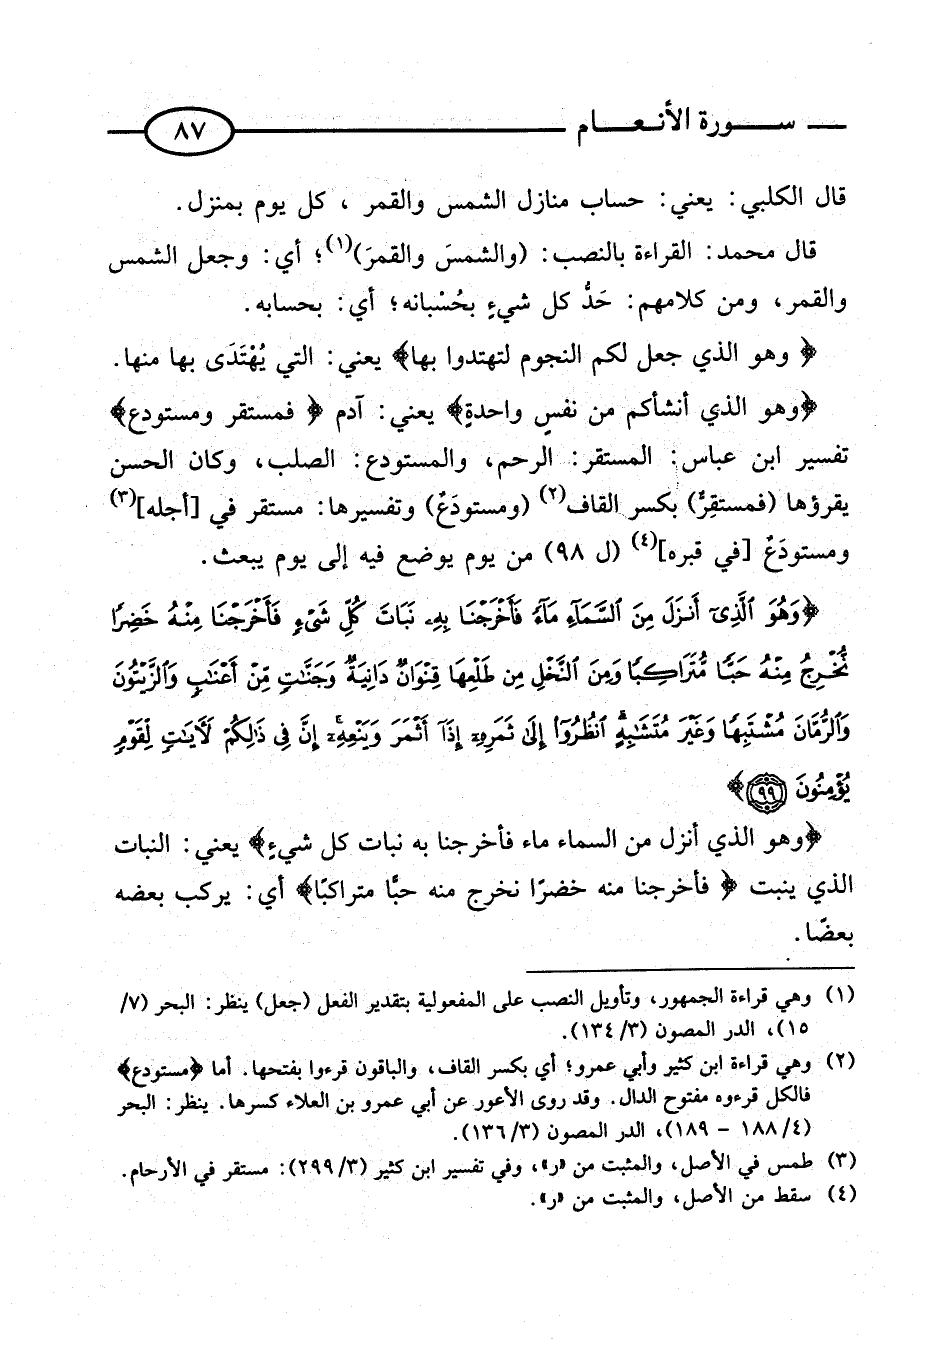 سورة الأنعام ٨٧
قال الكلبي: يعني: حساب منازل الشمس والقمر ، كل يوم بمنزل.
قال محمد: القراءة بالنصب: (والشمسَ والقمرَ)(١)؛ أي: وجعل الشمس
والقمر، ومن كلامهم: حَدُّ كل شيءٍ بحُسْبانه؛ أي: بحسابه.
﴿ وهو الذي جعل لكم النجوم لتهتدوا بها﴾ يعني: التي يُهْتَدَى بها منها.
﴿وهو الذي أنشأكم من نفسٍ واحدةٍ﴾ يعني: آدم ﴿ فمستقر ومستودع﴾
تفسير ابن عباس: المستقر: الرحم، والمستودع: الصلب، وكان الحسن
يقرؤها (فمستقِرٌّ) بكسر القاف(٢) (ومستودَعٌ) وتفسيرها: مستقر في [أجله](٣)
ومستودَعٌ [في قبره](٤) (ل ٩٨) من يوم يوضع فيه إلى يوم يبعث.
﴿وَهُوَ ٱلَّذِىٓ أَنزَلَ مِنَ ٱلسَّمَآءِ مَآءً فَأَخْرَجْنَا بِهِۦ نَبَاتَ كُلِّ شَىْءٍ فَأَخْرَجْنَا مِنْهُ خَضِرًا
نُّخْرِجُ مِنْهُ حَبًّا مُّتَرَاكِبًا وَمِنَ ٱلنَّخْلِ مِن طَلْعِهَا قِنْوَانٌ دَانِيَةٌ وَجَنَّٰتٍ مِّنْ أَعْنَابٍ وَٱلزَّيْتُونَ
وَٱلرُّمَّانَ مُشْتَبِهًا وَغَيْرَ مُتَشَٰبِهٍ ٱنظُرُوٓا۟ إِلَىٰ ثَمَرِهِۦٓ إِذَآ أَثْمَرَ وَيَنْعِهِۦٓ إِنَّ فِى ذَٰلِكُمْ لَءَايَٰتٍ لِّقَوْمٍ
يُؤْمِنُونَ ٩٩﴾
﴿وهو الذي أنزل من السماء ماء فأخرجنا به نبات كل شيءٍ﴾ يعني: النبات
الذي ينبت ﴿ فأخرجنا منه خضرًا نخرج منه حبًّا متراكبًا﴾ أي: يركب بعضه
بعضًا.
(١) وهي قراءة الجمهور، وتأويل النصب على المفعولية بتقدير الفعل (جعل) ينظر: البحر (٧/
١٥)، الدر المصون (٣/ ١٣٤).
(٢) وهي قراءة ابن كثير وأبي عمرو؛ أي بكسر القاف، والباقون قرءوا بفتحها. أما ﴿مستودع﴾
فالكل قرءوه مفتوح الدال. وقد روى الأعور عن أبي عمرو بن العلاء كسرها. ينظر: البحر
(٤/ ١٨٨ - ١٨٩)، الدر المصون (٣/ ١٣٦).
(٣) طمس في الأصل، والمثبت من «ر»، وفي تفسير ابن كثير (٣/ ٢٩٩): مستقر في الأرحام.
(٤) سقط من الأصل، والمثبت من «ر».